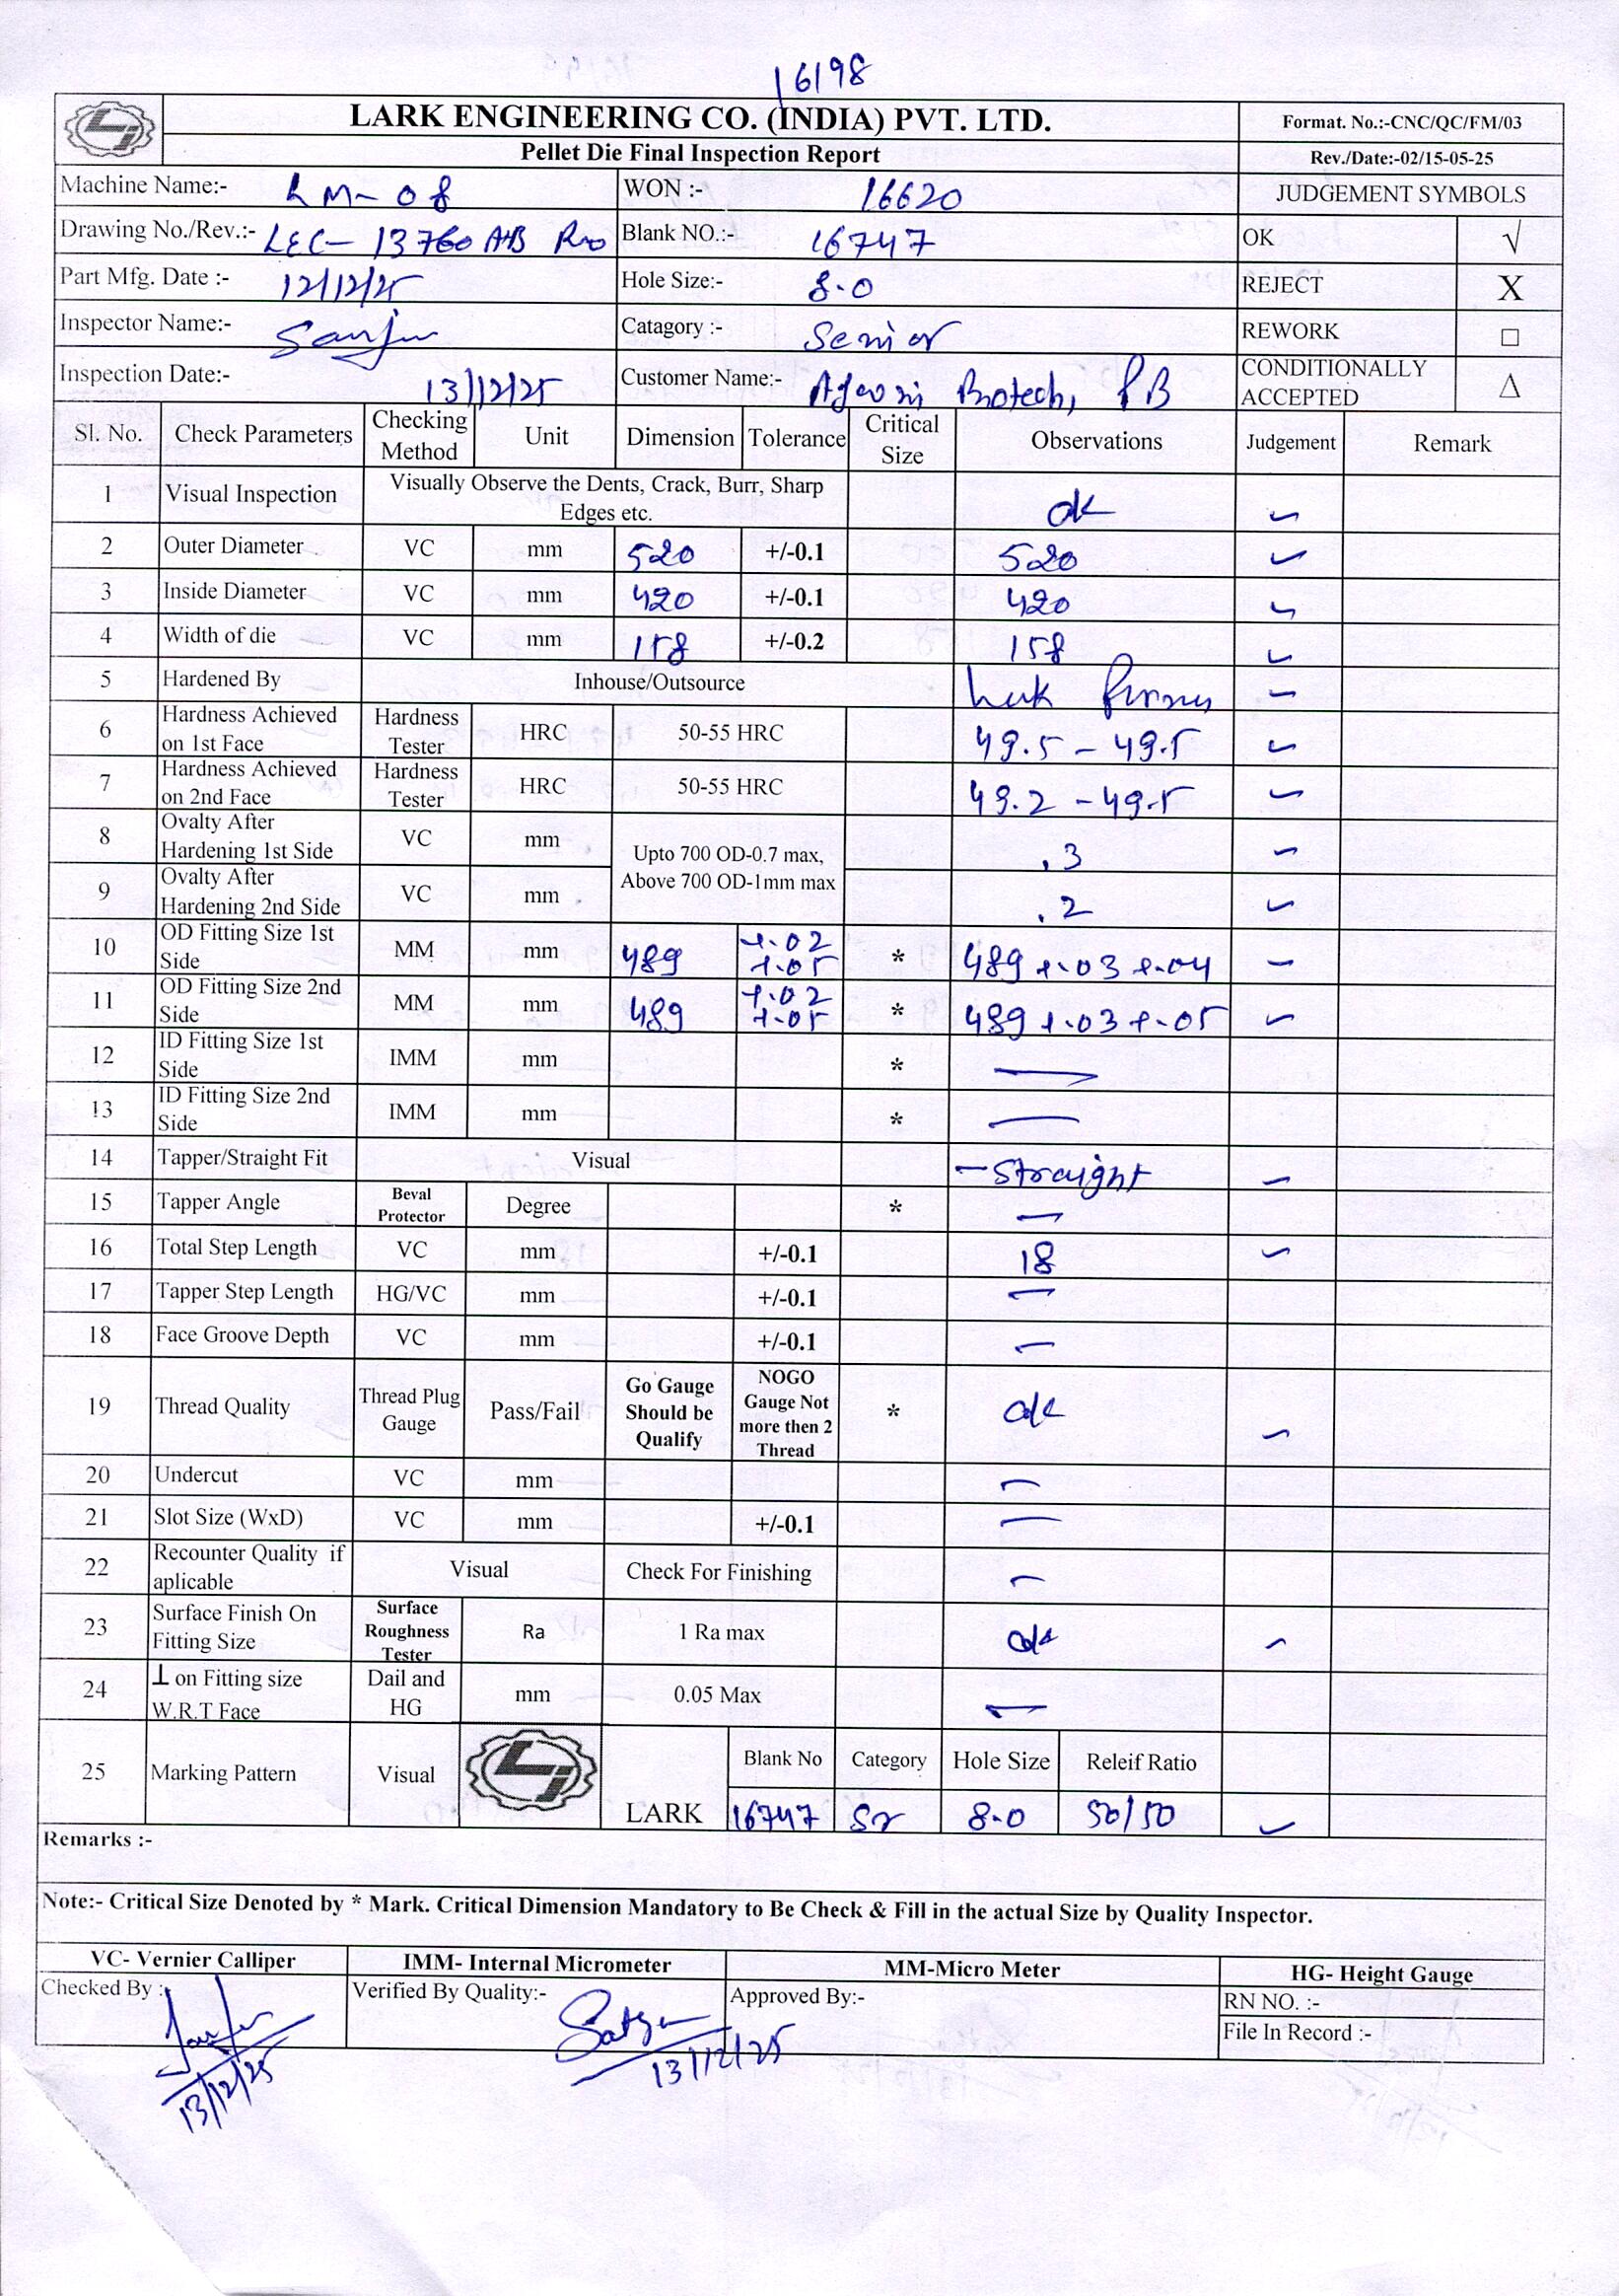 16198
LARK ENGINEERING CO. (INDIA) PVT. LTD.
Pellet Die Final Inspection Report
Format. No.:-CNC/QC/FM/03
Rev./Date:-02/15-05-25
Machine Name:- LM-08 WON :- 16620 JUDGEMENT SYMBOLS
Drawing No./Rev.:- LEC-13760 AB Blank NO.:- 16747 OK √
Part Mfg. Date :- 12/12/25 Hole Size:- 8.0 REJECT X
Inspector Name:- Sanju Catagory :- Senior REWORK □
Inspection Date:- 13/12/25 Customer Name:- Biotech, PB CONDITIONALLY ACCEPTED Δ
Sl. No. Check Parameters Checking Method Unit Dimension Tolerance Critical Size Observations Judgement Remark
1 Visual Inspection Visually Observe the Dents, Crack, Burr, Sharp Edges etc. ok ✓
2 Outer Diameter VC mm 520 +/-0.1 520 ✓
3 Inside Diameter VC mm 420 +/-0.1 420 ✓
4 Width of die VC mm 158 +/-0.2 158 ✓
5 Hardened By Inhouse/Outsource ✓
6 Hardness Achieved on 1st Face Hardness Tester HRC 50-55 HRC 49.5 - 49.5 ✓
7 Hardness Achieved on 2nd Face Hardness Tester HRC 50-55 HRC 49.2 - 49.5 ✓
8 Ovalty After Hardening 1st Side VC mm Upto 700 OD-0.7 max, Above 700 OD-1mm max .3 ✓
9 Ovalty After Hardening 2nd Side VC mm .2 ✓
10 OD Fitting Size 1st Side MM mm 489 +.02 +.05 * 489 +.03 +.04 ✓
11 OD Fitting Size 2nd Side MM mm 489 +.02 +.05 * 489 +.03 +.05 ✓
12 ID Fitting Size 1st Side IMM mm * —
13 ID Fitting Size 2nd Side IMM mm * —
14 Tapper/Straight Fit Visual - Straight ✓
15 Tapper Angle Beval Protector Degree * —
16 Total Step Length VC mm +/-0.1 18 ✓
17 Tapper Step Length HG/VC mm +/-0.1 —
18 Face Groove Depth VC mm +/-0.1 —
19 Thread Quality Thread Plug Gauge Pass/Fail Go Gauge Should be Qualify NOGO Gauge Not more then 2 Thread * ok ✓
20 Undercut VC mm —
21 Slot Size (WxD) VC mm +/-0.1 —
22 Recounter Quality if aplicable Visual Check For Finishing —
23 Surface Finish On Fitting Size Surface Roughness Tester Ra 1 Ra max ok ✓
24 ⊥ on Fitting size W.R.T Face Dail and HG mm 0.05 Max —
25 Marking Pattern Visual LARK Blank No Category Hole Size Releif Ratio
16747 Sr 8.0 50/50 ✓
Remarks :-
Note:- Critical Size Denoted by * Mark. Critical Dimension Mandatory to Be Check & Fill in the actual Size by Quality Inspector.
VC- Vernier Calliper IMM- Internal Micrometer MM-Micro Meter HG- Height Gauge
Checked By : Sanju 13/12/25 Verified By Quality:- 13/12/25 Approved By:- RN NO. :-
File In Record :-